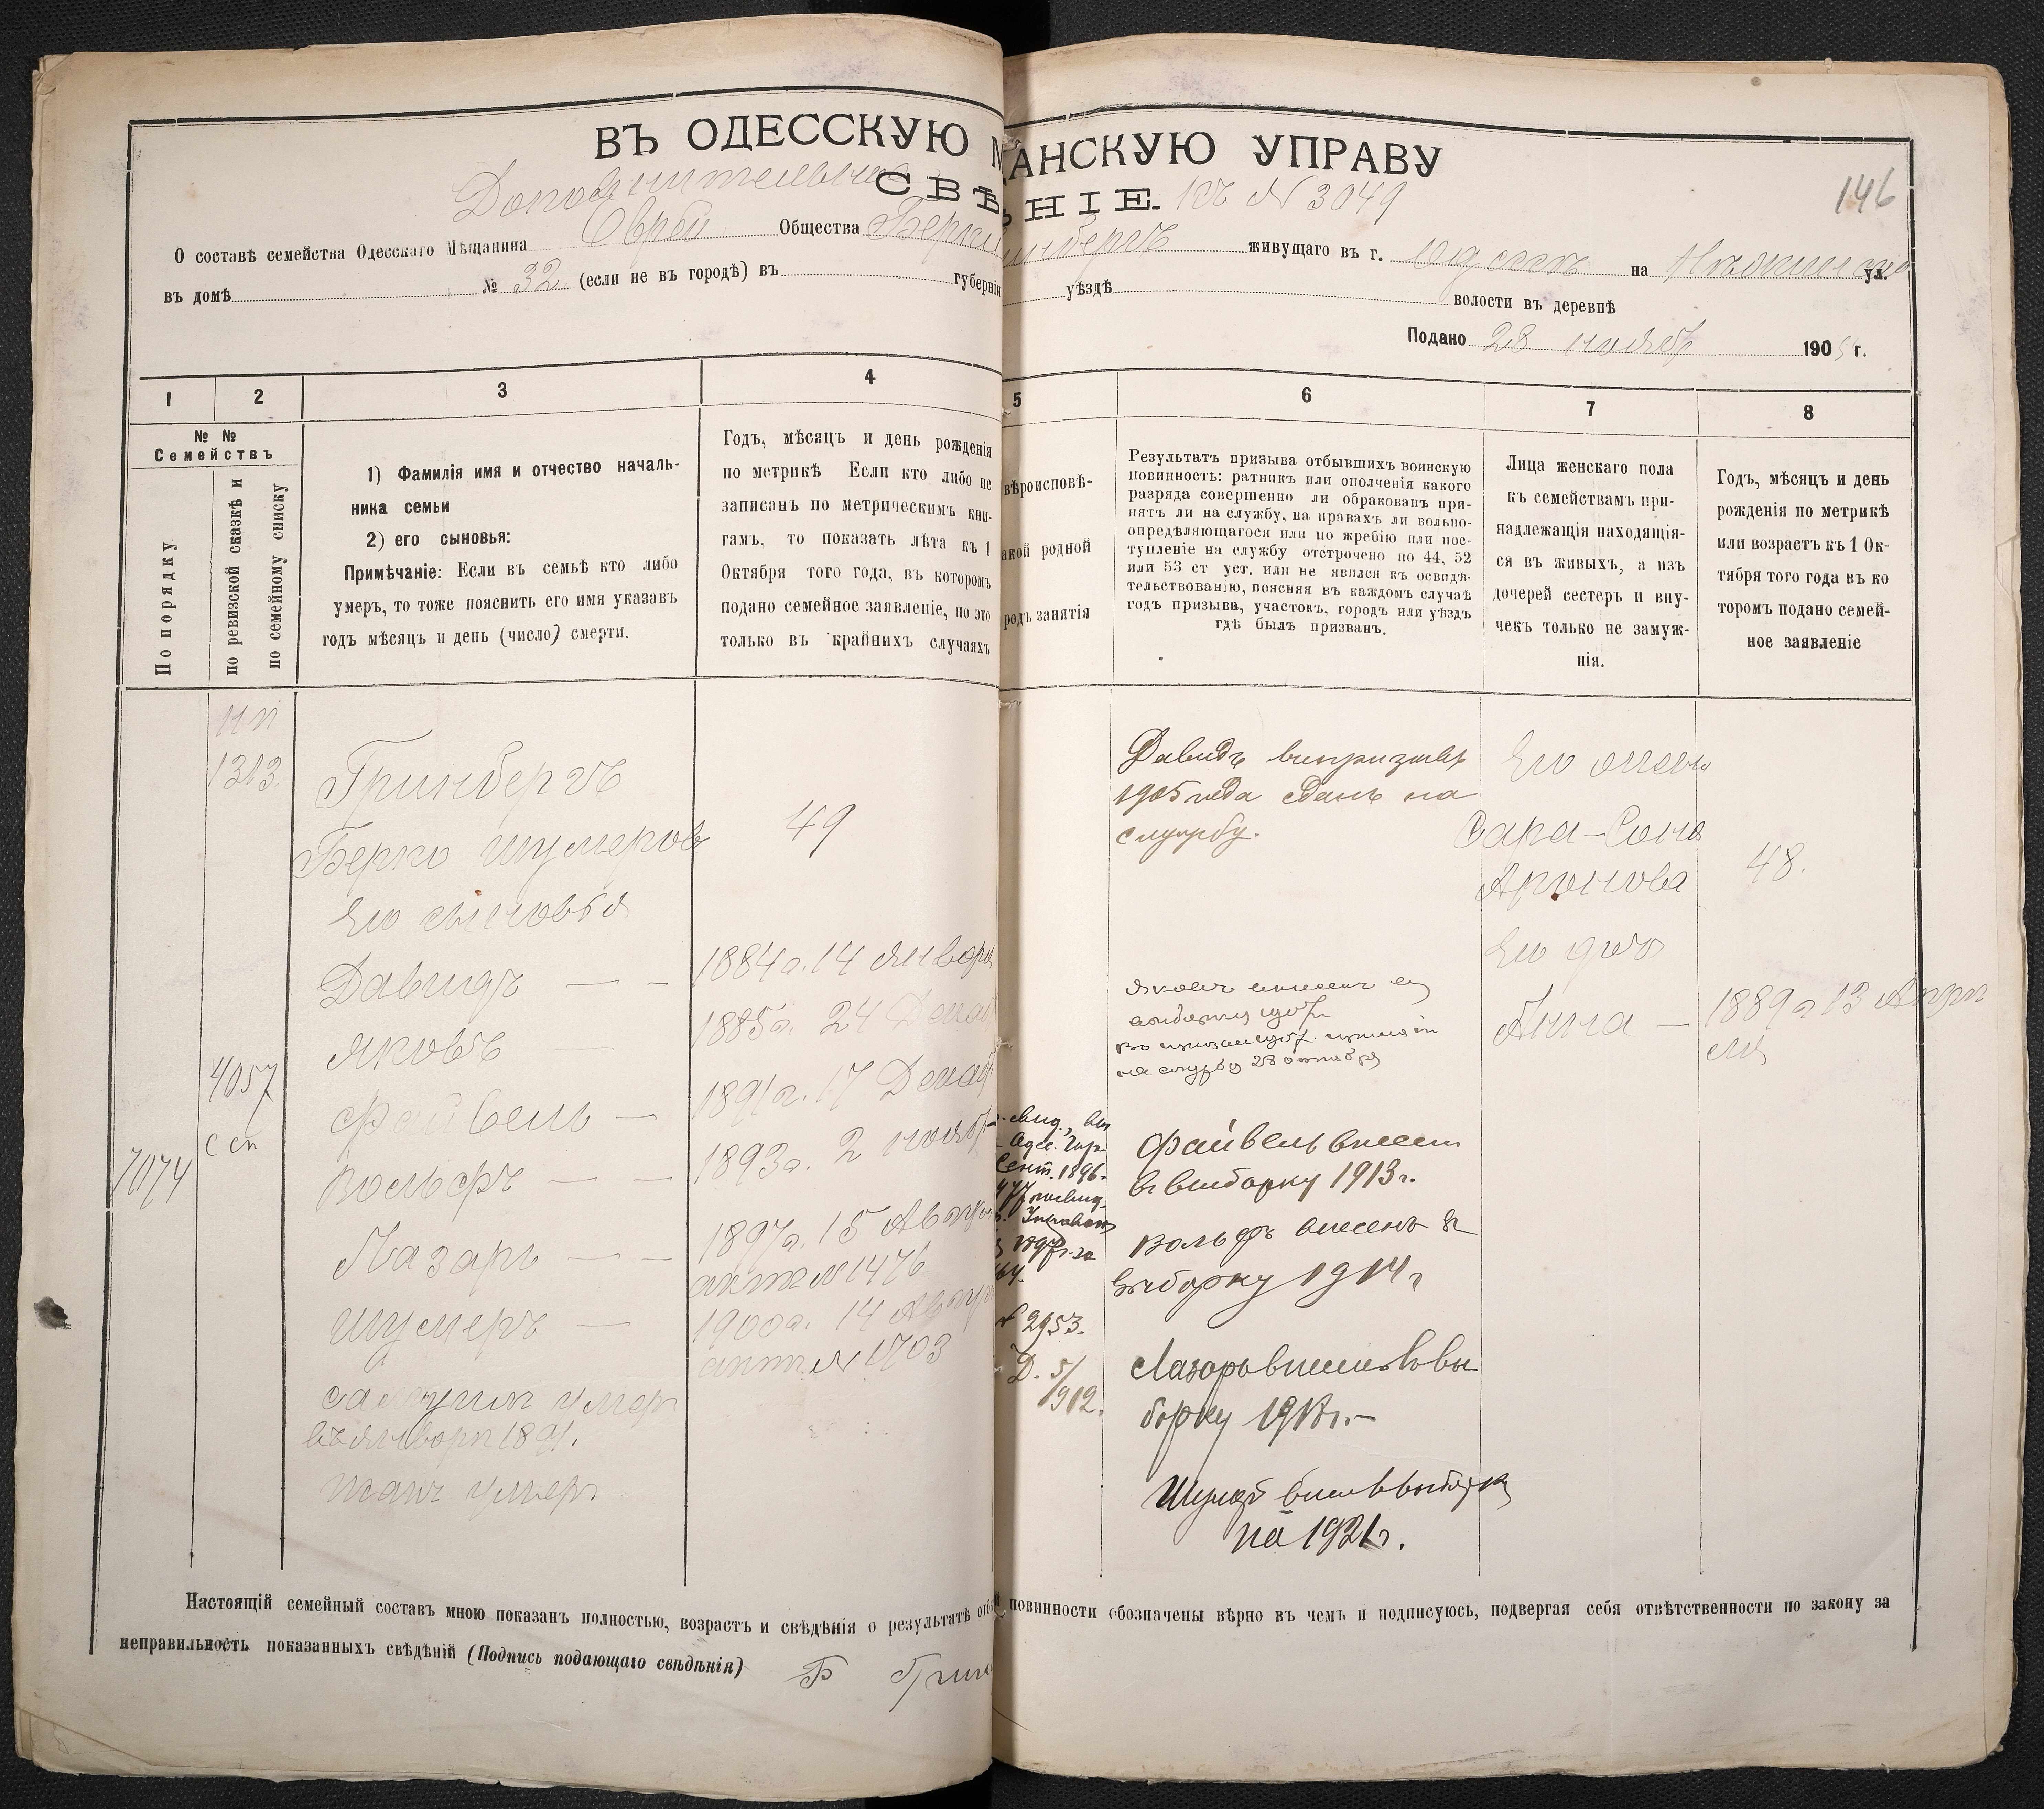 146
ВЪ ОДЕССКУЮ М АНСКУЮ УПРАВУ
Дополнительное СВѢ НІЕ. къ № 3049
О составѣ семейства Одесскаго Мѣщанина Еврей Общества Берки инбергъ живущаго въ г. Одессѣ на ул.
въ домѣ № 32 (если не въ городѣ) въ губерніи уѣздѣ волости въ деревнѣ
Подано 28 ноябр 190 г.
1 2 3 4 5 6 7 8
№ №
Семействъ
По порядку
по ревизской сказкѣ и
по семейному списку
1) Фамилія имя и отчество началь-
ника семьи
2) его сыновья:
Примѣчаніе: Если въ семьѣ кто либо
умеръ, то тоже пояснить его имя указавъ
годъ мѣсяцъ и день (число) смерти.
Годъ, мѣсяцъ и день рожденія
по метрикѣ Если кто либо не
записанъ по метрическимъ кни-
гамъ, то показать лѣта къ 1
Октября того года, въ которомъ
подано семейное заявленіе, но это
только въ крайнихъ случаяхъ
вѣроисповѣ-
акой родной
родъ занятія
Результатъ призыва отбывшихъ воинскую
повинность: ратникъ или ополченія какого
разряда совершенно ли обракованъ при-
нятъ ли на службу, на правахъ ли вольно-
опредѣляющагося или по жребію или пос-
тупленіе на службу отстрочено по 44, 52
или 53 ст уст. или не явился къ освидѣ-
тельствованію, поясняя въ каждомъ случаѣ
годъ призыва, участокъ, городъ или уѣздъ
гдѣ былъ призванъ.
Лица женскаго пола
къ семействамъ при-
надлежащія находящія-
ся въ живыхъ, а изъ
дочерей сестеръ и вну-
чекъ только не замуж-
нія.
Годъ, мѣсяцъ и день
рожденія по метрикѣ
или возрастъ къ 1 Ок-
тября того года въ ко
торомъ подано семей-
ное заявленіе
1313.
4057
с сп
7074
Гринбергъ
Берко Шумеровъ
Его сыновья
Давидъ — —
Яковъ —
Файвель —
Вольфъ — —
Лазарь — —
Шумеръ —
умеръ
въ январѣ 1891.
умеръ
49
1884 г. 14 января
1885 г. 24 Декаб
1891 г. 17 Декаб
1893 г. 2 ноябр
1897 г. 15 Авгу
актъ № 1476
1900 г. 14 Авгу
актъ № 1703
Одес. Гор.
Сент. 1896
№ 2953.
Д. 5/912.
Давидъ въ призывъ
1905 года сданъ на
службу.
Яковъ внесенъ въ
на службу 28 октября
Файвель внесен
въ выборку 1913 г.
Вольфъ внесенъ в
выборку 1914 г
Лазарь внесен в вы
борку 1918 г. —
Шумер внес в выборку
на 1921 г.
Его жена
Сара-Соня
Аронова
Его дочь
Анна —
48.
1889 г 13 Апрѣ
ля
Настоящій семейный составъ мною показанъ полностью, возрастъ и свѣдѣнія о результатѣ отб й повинности обозначены вѣрно въ чемъ и подписуюсь, подвергая себя отвѣтственности по закону за
неправильность показанныхъ свѣдѣній (Подпись подающаго свѣдѣнія) Б Грин